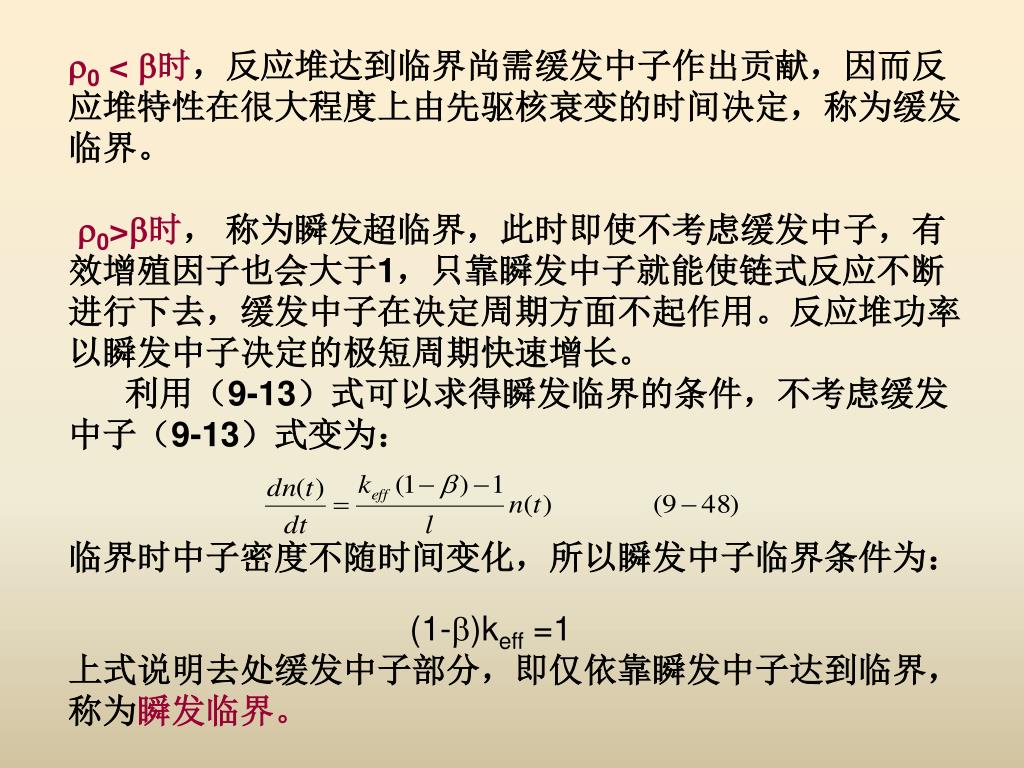 ρ₀ < β时，反应堆达到临界尚需缓发中子作出贡献，因而反
应堆特性在很大程度上由先驱核衰变的时间决定，称为缓发
临界。
ρ₀>β时， 称为瞬发超临界，此时即使不考虑缓发中子，有
效增殖因子也会大于1，只靠瞬发中子就能使链式反应不断
进行下去，缓发中子在决定周期方面不起作用。反应堆功率
以瞬发中子决定的极短周期快速增长。
利用（9-13）式可以求得瞬发临界的条件，不考虑缓发
中子（9-13）式变为：
dn(t)/dt = (k_eff (1−β)−1)/l n(t) (9−48)
临界时中子密度不随时间变化，所以瞬发中子临界条件为：
(1-β)k_eff =1
上式说明去处缓发中子部分，即仅依靠瞬发中子达到临界，
称为瞬发临界。